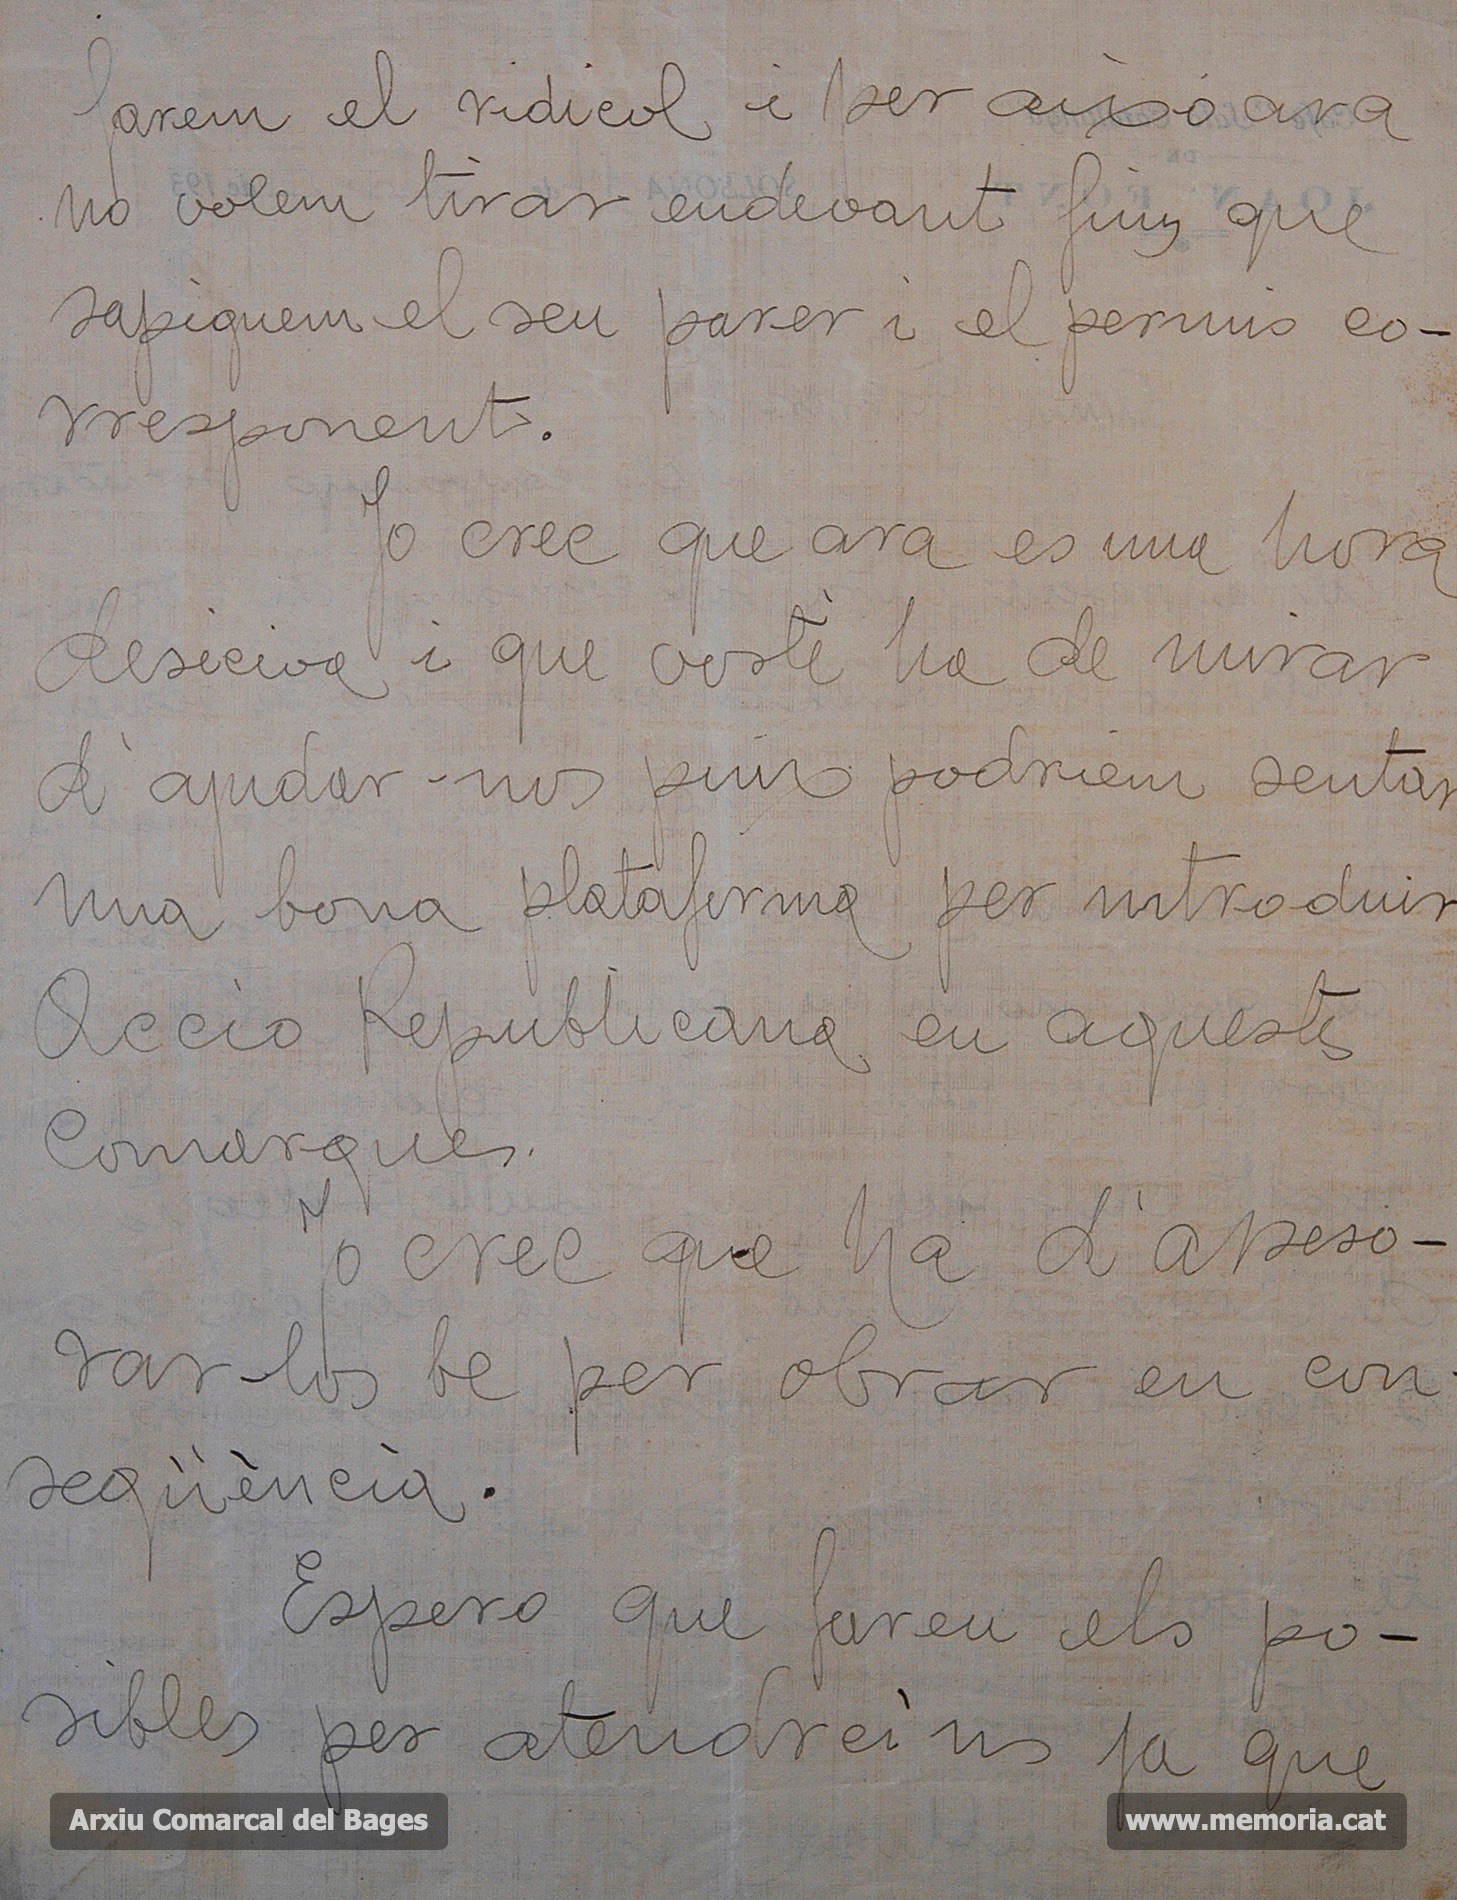 farem el ridicol i per aixó ara
no volem tirar endevant fins que
sapiguem el seu parer i el permis co-
rresponent.
Jo crec que ara es una hora
desiciva i que vostè ha de mirar
d'ajudar-nos puix podriem sentar
una bona plataforma per introduir
Acció Republicana en aquests
Comarques.
Jo crec que ha d'apeso-
rar-los be per obrar en con-
seqüència.
Espero que fareu els po-
sibles per atendre'ns ja que
Arxiu Comarcal del Bages
www.memoria.cat